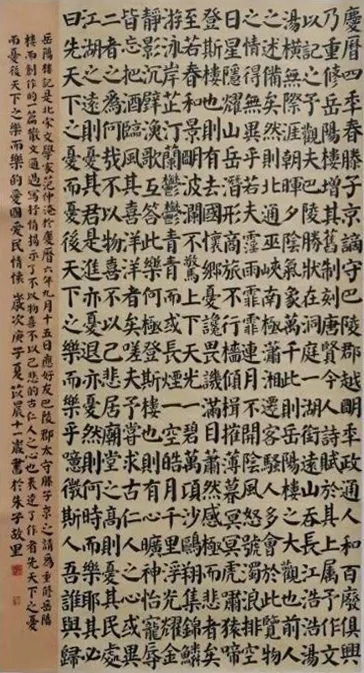 慶曆四年春滕子京謫守巴陵郡越明年政通人和百廢俱興
乃重修岳陽樓增其舊制刻唐賢今人詩賦於其上屬予作文
以記之予觀夫巴陵勝狀在洞庭一湖銜遠山吞長江浩浩湯
湯橫無際涯朝暉夕陰氣象萬千此則岳陽樓之大觀也前人
之述備矣然則北通巫峽南極瀟湘遷客騷人多會於此覽物
之情得無異乎若夫霪雨霏霏連月不開陰風怒號濁浪排空
日星隱耀山岳潛形商旅不行檣傾楫摧薄暮冥冥虎嘯猿啼
登斯樓也則有去國懷鄉憂讒畏譏滿目蕭然感極而悲者矣
至若春和景明波瀾不驚上下天光一碧萬頃沙鷗翔集錦鱗
游泳岸芷汀蘭鬱鬱青青而或長煙一空皓月千里浮光耀金
靜影沉璧漁歌互答此樂何極登斯樓也則有心曠神怡寵辱
皆忘把酒臨風其喜洋洋者矣嗟夫予嘗求古仁人之心或異
二者之為何哉不以物喜不以己悲居廟堂之高則憂其民處
江湖之遠則憂其君是進亦憂退亦憂然則何時而樂耶其必
曰先天下之憂而憂後天下之樂而樂乎噫微斯人吾誰與歸
岳陽樓記是北宋文學家范仲淹於慶曆六年九月十五日應好友巴陵郡太守滕子京之請為重修岳陽
樓而創作的一篇散文通過寫抒情揭示了不以物喜不以己悲的古仁人之心也表達了作者先天下之憂
而憂後天下之樂而樂的愛國愛民情懷 歲次庚子夏苡宸十一歲書於朱子故里